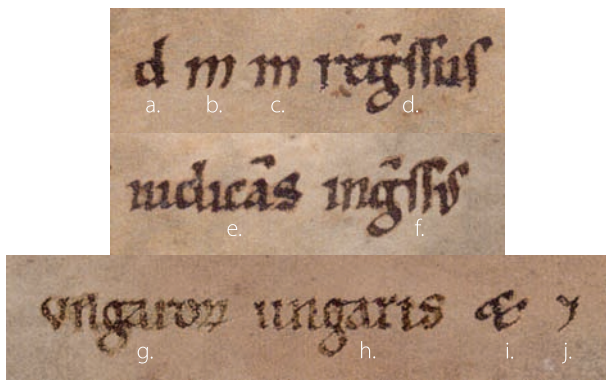 d m m reg̃ſſuſ
a. b. c. d.
iudicãs ing̃ſſvs
e. f.
vngaroꝝ ungaris &
g. h. i. j.